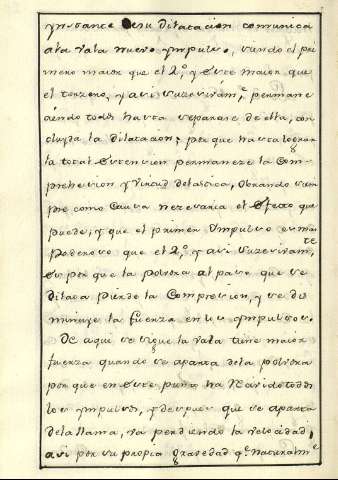 ynstante de su Dilatacion comunica
a la vala nuevo ympulso, siendo el pri
mero maior que el 2º, y este maior que
el terzero, y asi suzesivamte, permane
ciendo todos hasta separarse de ella, con
cluyda la dilatacion; por que hasta lograr
la total Extension permaneze la Com-
prehesion y virtud elastica, obrando siem
pre como Causa nezesaria el Efecto que
puede, y que el primer ympulso es mas
Poderoso que el 2º, y asi suzesivamte,
Es por que la polvora al paso que se
dilata pierde la Compresion, y se dis
minuye la fuerza en sus ympulsos.
De aqui se sigue la vala tiene maior
fuerza quando se aparta de la polvora
por que en este punto ha Rezivido todos
los ympulsos, y despues que se aparta
de la llama, va perdiendo la velocidad,
asi por su propia gravedad qe naturalmte